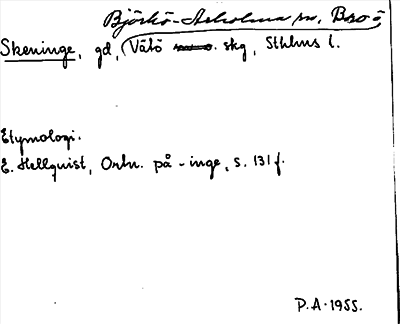 Björkö-Arholma sn, Bro ö
Skeninge, gd, Vätö skg, Sthlms l.
Etymologi.
E. Hellquist, Ortn. på -inge, s. 131 f.
P.A. 1955.